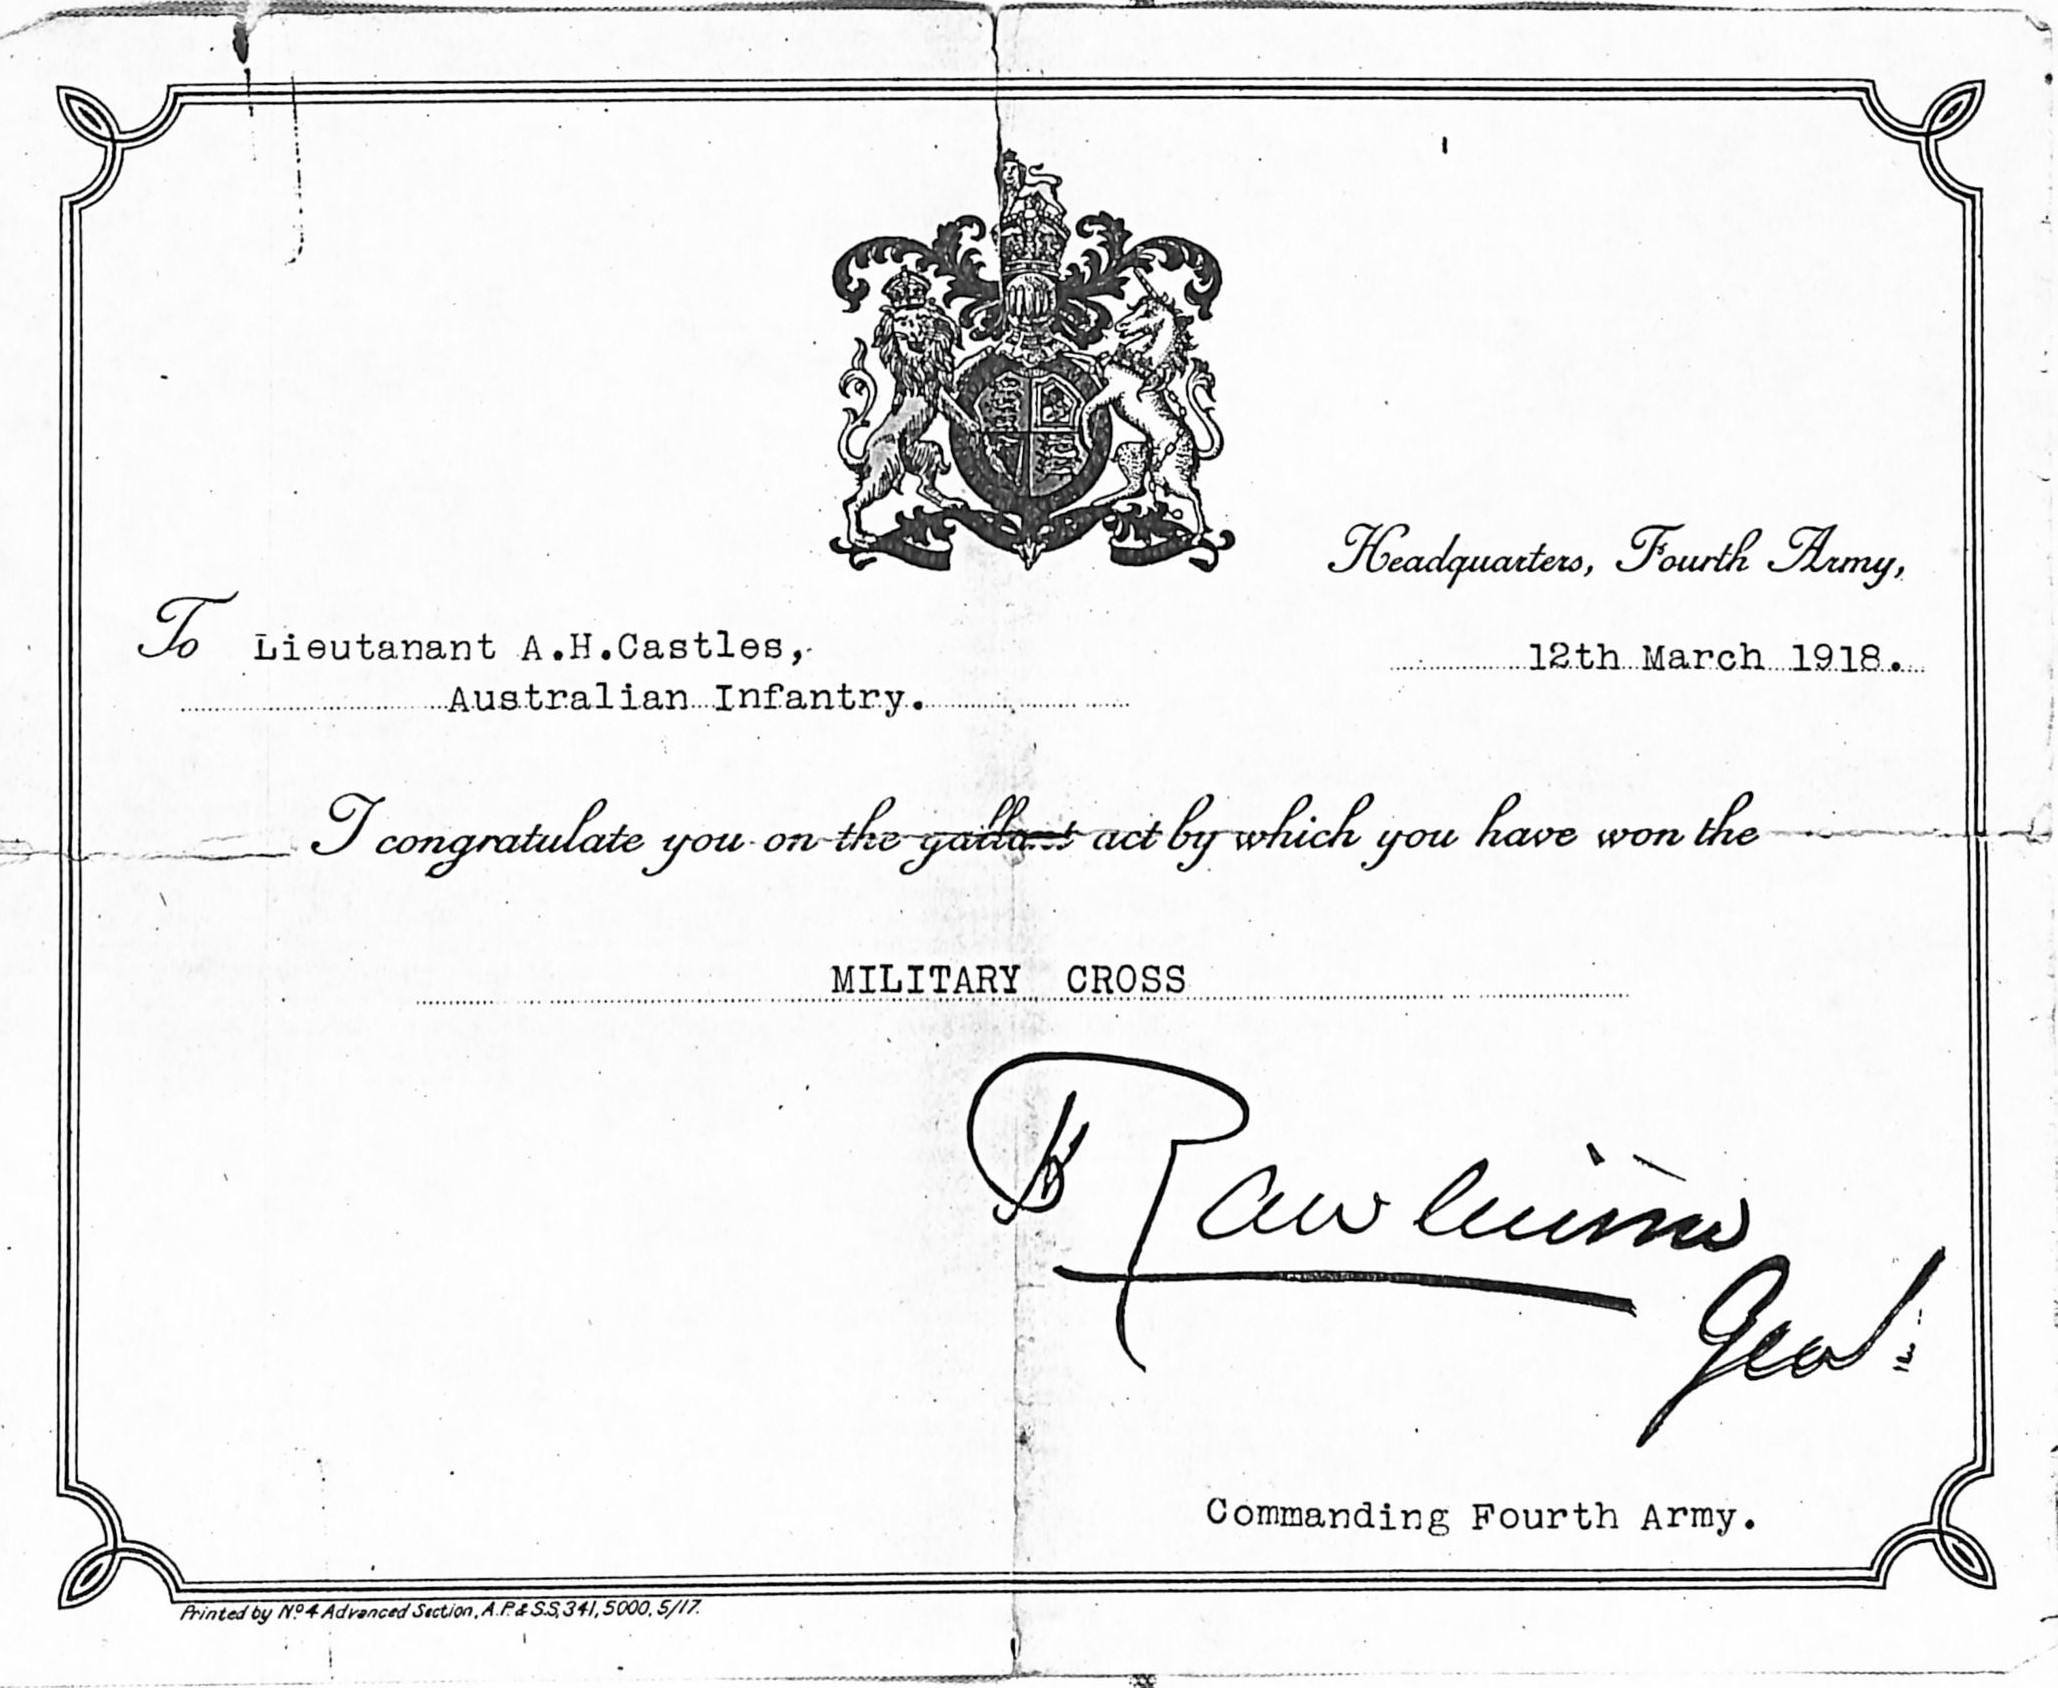 Headquarters, Fourth Army,
To Lieutanant A.H.Castles,
12th March 1918.
Australian Infantry.
I congratulate you on the gallant act by which you have won the
MILITARY CROSS
Rawlinson
Genl.
Commanding Fourth Army.
Printed by No 4 Advanced Section, A.P. & S.S, 341, 5000, 5/17.